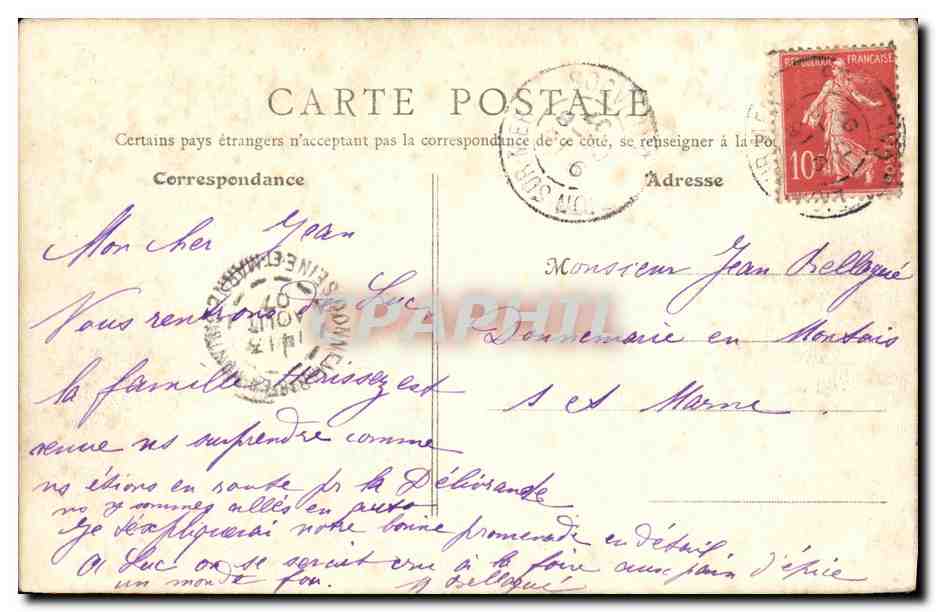 CARTE POSTALE
Certains pays étrangers n'acceptant pas la correspondance de ce côté, se renseigner à la Po
Correspondance
Adresse
REPUBLIQUE FRANÇAISE
10
Mon cher Jean
Vous rentrons de Luc,
la famille Hérissez est
venue ns surprendre comme
ns étions en route pr la Délivrande
ns y sommes allés en auto
Je t'expliquerai notre bonne promenade en détail
A Luc on se serait cru à la foire aux pain d'épice
un monde fou.
Bellagué
Monsieur Jean Bellagué
Donnemarie en Montois
S et Marne
DONNEMARIE
SEINE-ET-MARNE
14 13
AOUT
07
SUR MER
CPAPHIL